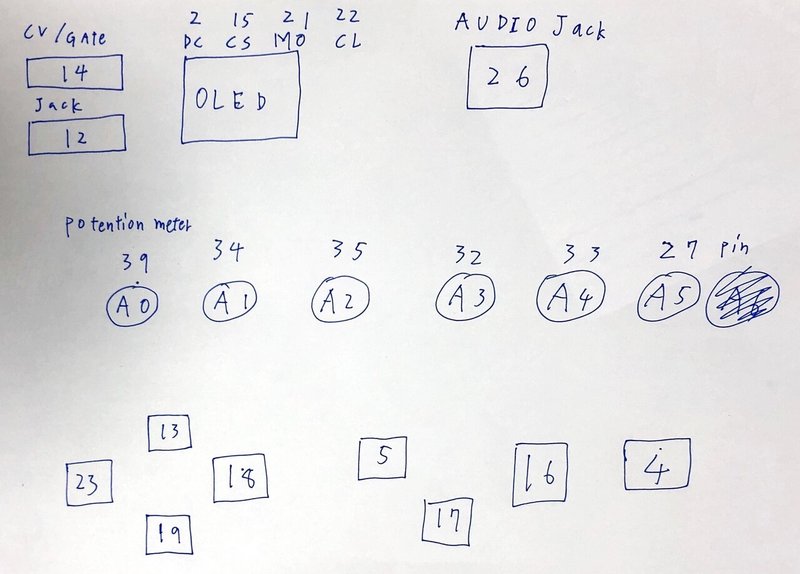 CV/GAte
14
Jack
12
2 15 21 22
DC CS MO CL
OLED
AUDIO Jack
26
potention meter
39 34 35 32 33 27 pin
A0 A1 A2 A3 A4 A5
13
23 18
19
5
17
16
4